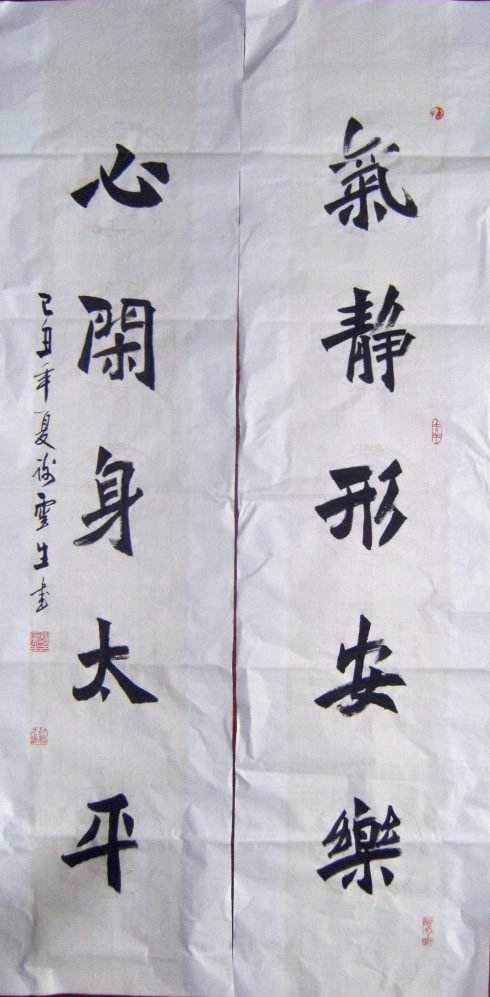 氣靜形安樂
心閑身太平
己丑年夏 雲生書